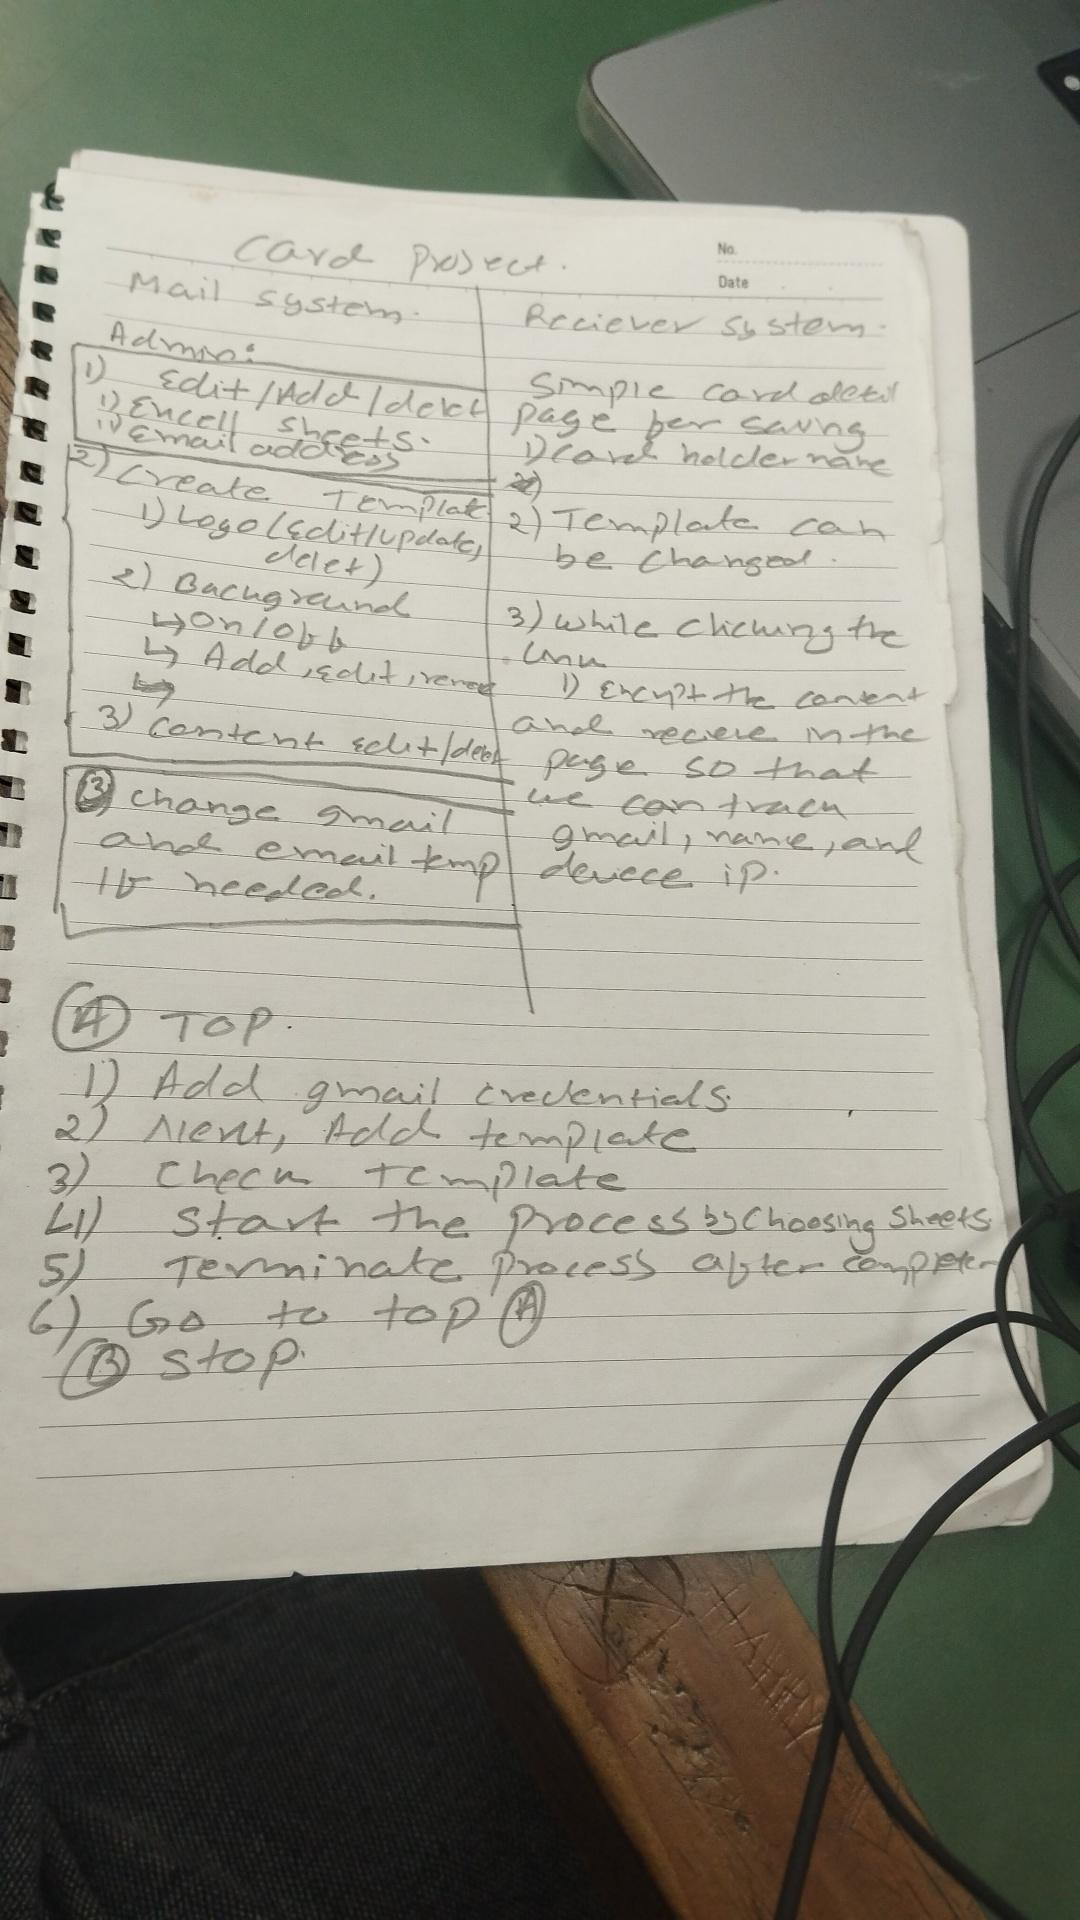 Card Project.
No.
Date
Mail system.
Admin:
1) Edit/Add/delet
i) Excell sheets.
ii) Email address
2) Create Templat
1) Logo (Edit/update,
delet)
2) Background
↳ On/Off
↳ Add, edit, remo
3) Content edit/delet
3) change gmail
and email temp
If needed.
Reciever System.
Simple card detil
page for saving
1) Card holder name
2) Template can
be changed.
3) While clicking the
link
1) Encrypt the content
and recieve in the
page so that
we can track
gmail, name, and
device ip.
(A) TOP.
1) Add gmail credentials.
2) Next, Add template
3) Check template
4) Start the process by Choosing Sheets.
5) Terminate process after
6) Go to top (A)
(B) Stop.
HARRY